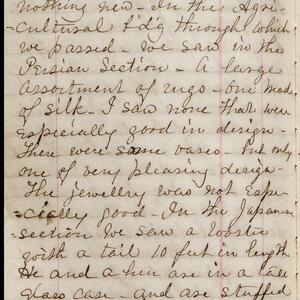 nothing new - In the Agri-
cultural b'd'g through which
we passed - We saw in the
Persian Section - A large
assortment of rugs - one made
of silk - I saw none that were
Especially good in design -
There were some vases - but only
one of very pleasing design -
The jewellry was not Espe-
-cially good - In the Japanese
section We saw a rooster
with a tail 10 feet in length
He and a hen are in a tall
glass case - and are stuffed